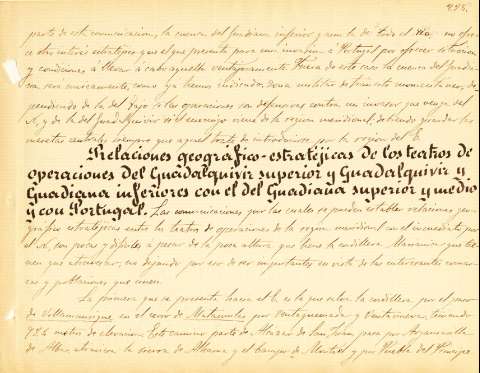 225.
parte de esta comunicacion, la cuenca del Guadiana inferior y aun la de todo el no ofre
ce otro interés estratégico que el que presenta para una invasion á Portugal por ofrecer
y condiciones á llevar á cabo aquella ventajosamente. Fuera de este caso la cuenca del Guadia
na sera meramente, como ya hemos indicado, zona ó teatro de tránsito momentaneo, de
pendiendo de la del Tajo á las operaciones con defensivas contra un invasor que venga del
N. y de la del Guadalquivir si el enemigo viene de la region meridional, debiendo guardar las
nuestras siempre que aquel trate de introducirse por la region del E.
Relaciones geográfico-estratéjicas de los teatros de
operaciones del Guadalquivir superior y Guadalquivir y
Guadiana inferiores con el del Guadiana superior y medio
y con Portugal. Las comunicaciones por las cuales se pueden establecer relaciones geo-
gráfico estratégicas entre los teatros de operaciones de la region meridional con el inmediato por
el N. son pocas y dificiles a pesar de la poca altura que tiene la cordillera Mariánica que tie
nen que atravesar, no dejando por eso de ser importantes en vista de las interesantes comar
cas y poblaciones que unen.
La primera que se presenta hacia el E. es la que salva la cordillera por el paso
de Villamanrique, en el cerro de por venta quemada y venta nueva, teniendo
924 metros de elevacion. Este camino parte de Alcazar de San Juan pasa por Argamasilla
de Alba, atraviesa la sierra de Alhama y el campo de Montiel y por Puebla del Principe